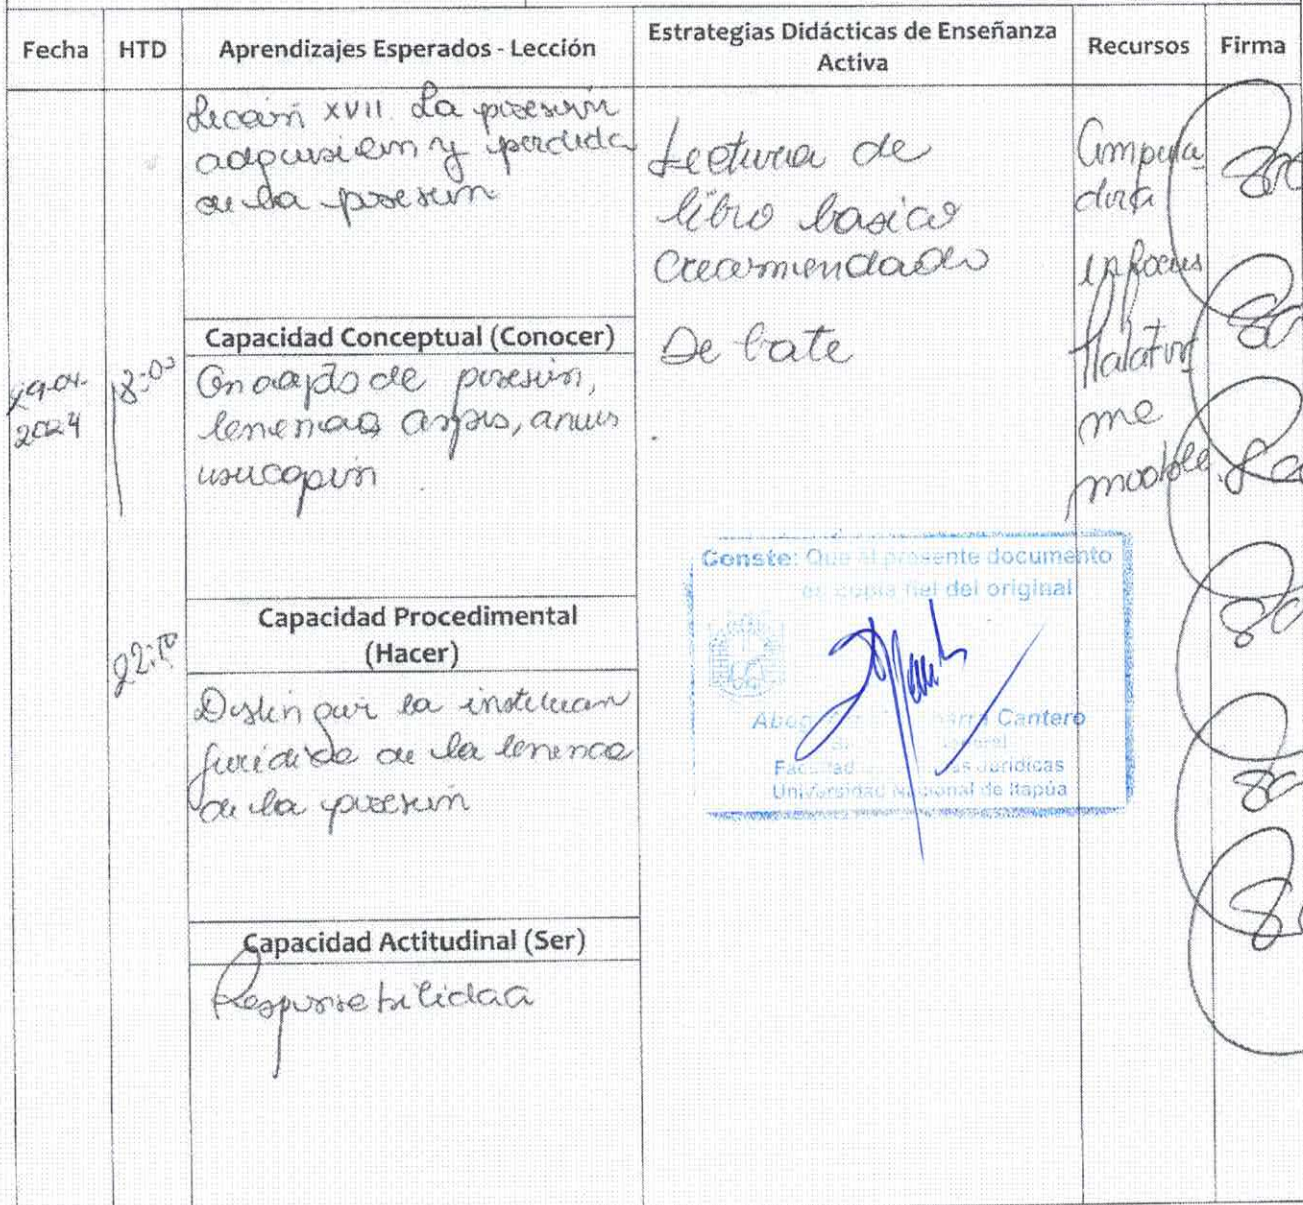 Fecha
HTD
Aprendizajes Esperados - Lección
Estrategias Didácticas de Enseñanza
Activa
Recursos
Firma
Lección XVII. La posesión
adquisición y perdida
de la posesión
Capacidad Conceptual (Conocer)
2024
18:00
Concepto de posesión,
tenencia corpus, animus
usucapión
22:10
Capacidad Procedimental
(Hacer)
Distinguir la institución
jurídica de la tenencia
de la posesión
Capacidad Actitudinal (Ser)
Responsabilidad
Lectura de
libro basico
recomendado
Debate
Computa
dora
infocus
Platafor
me
moodle
Conste: Que el presente documento
es copia fiel del original
Cantero
Facultad de Jurídicas
Universidad Nacional de Itapúa